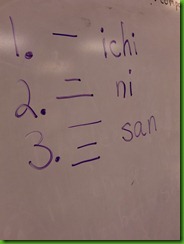 1. 一 ichi
2. 二 ni
3. 三 san